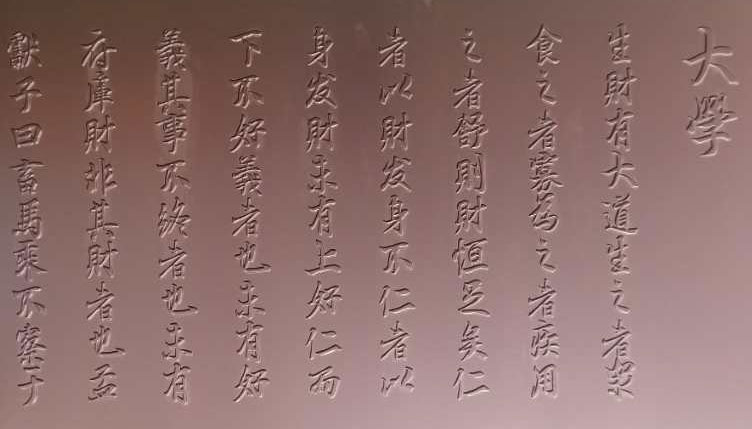 大學
生財有大道生之者眾
食之者寡為之者疾用
之者舒則財恒足矣仁
者以財发身不仁者以
身发財未有上好仁而
下不好義者也未有好
義其事不終者也未有
府庫財非其財者也孟
獻子曰畜馬乘不察于